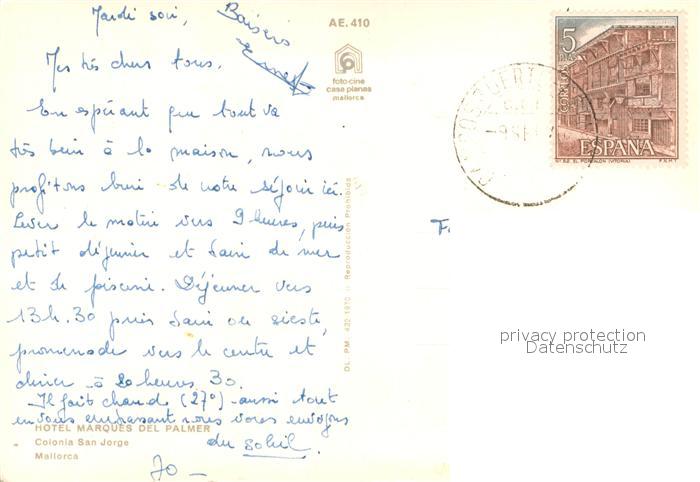 Mardi soir,
Baisers
AE.410
foto-cine
casa planas
mallorca
Mes très chers tous.
En espérant que tout va
très bien à la maison, nous
profitons bien de notre séjour ici.
Lever le matin vers 9 heures, puis
petit déjeuner et bain de mer
et de piscine. Déjeuner vers
13h.30 puis bain ou sieste,
promenade vers le centre et
diner à 20 heures 30.
Il fait chaud (27°) aussi tout
en vous embrassant nous vous envoyons
du soleil.
HOTEL MARQUES DEL PALMER
Colonia San Jorge
Mallorca
70 —
DL. P.M. 432-1970 Reproducción Prohibida
F.
5
PTA
CORREOS
ESPAÑA
EL PORTALON (VITORIA)
F.N.M.T.
privacy protection
Datenschutz